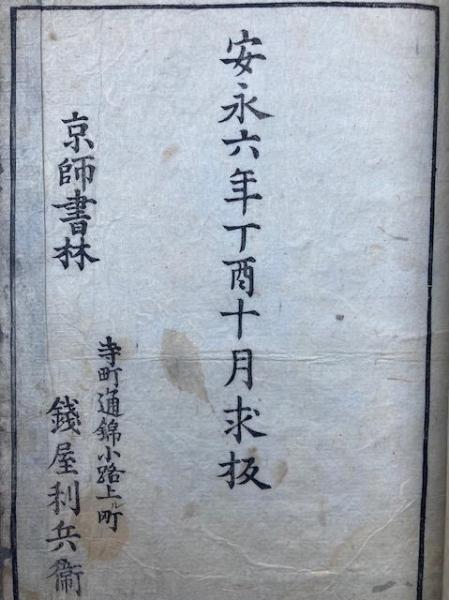 安永六年丁酉十月求板
京師書林
寺町通錦小路上ル町
錢屋利兵衞